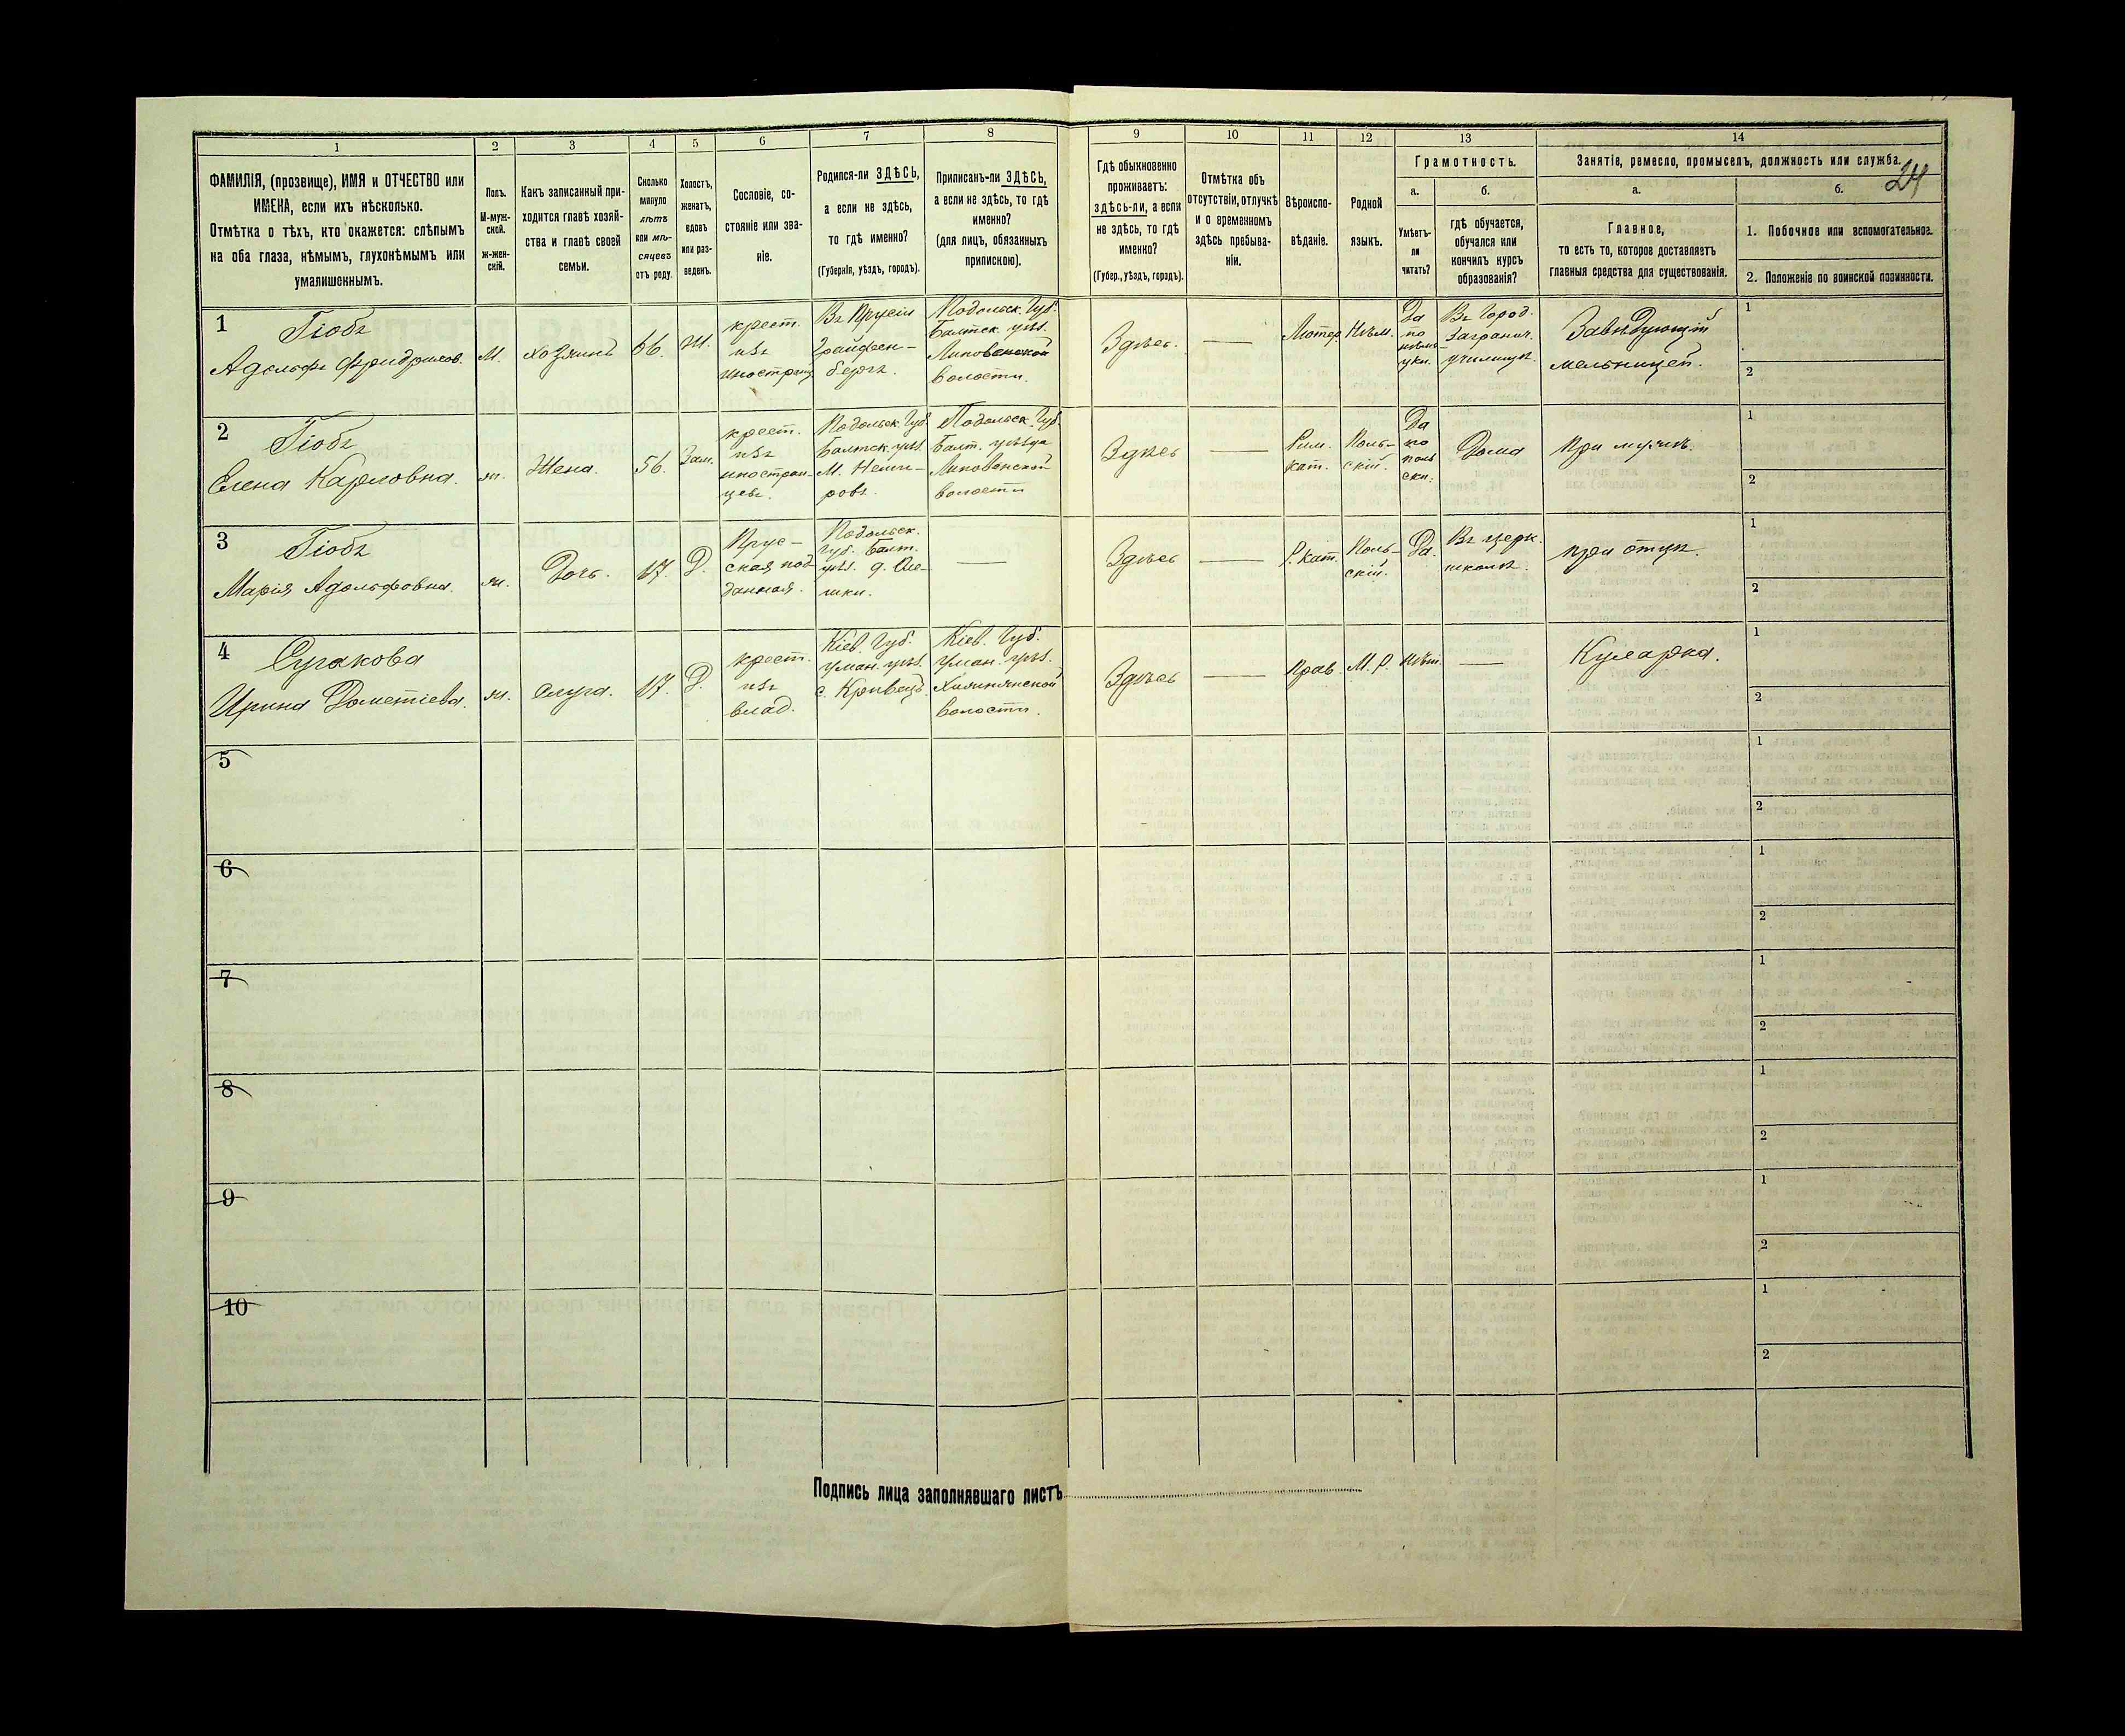 24
1 2 3 4 5 6 7 8 9 10 11 12 13 14
ФАМИЛІЯ, (прозвище), ИМЯ и ОТЧЕСТВО или
ИМЕНА, если ихъ нѣсколько.
Отмѣтка о тѣхъ, кто окажется: слѣпымъ
на оба глаза, нѣмымъ, глухонѣмымъ или
умалишеннымъ.
Полъ.
М-муж-
ской.
ж-жен-
скій.
Какъ записанный при-
ходится главѣ хозяй-
ства и главѣ своей
семьи.
Сколько
минуло
лѣтъ
или мѣ-
сяцевъ
отъ роду.
Холостъ,
женатъ,
вдовъ
или раз-
веденъ.
Сословіе, со-
стояніе или зва-
ніе.
Родился-ли ЗДѢСЬ,
а если не здѣсь,
то гдѣ именно?
(Губернія, уѣздъ, городъ).
Приписанъ-ли ЗДѢСЬ,
а если не здѣсь, то гдѣ
именно?
(для лицъ, обязанныхъ
припискою).
Гдѣ обыкновенно
проживаетъ:
здѣсь-ли, а если
не здѣсь, то гдѣ
именно?
(Губер., уѣздъ, городъ).
Отмѣтка объ
отсутствіи, отлучкѣ
и о временномъ
здѣсь пребыва-
ніи.
Вѣроиспо-
вѣданіе.
Родной
языкъ.
Грамотность.
а.
Умѣетъ-
ли
читать?
б.
гдѣ обучается,
обучался или
кончилъ курсъ
образованія?
Занятіе, ремесло, промыселъ, должность или служба.
а.
Главное,
то есть то, которое доставляетъ
главныя средства для существованія.
б.
1. Побочное или вспомогательное.
2. Положеніе по воинской повинности.
1
Гіобъ
Адольфъ Фридрихов.
М.
хозяинъ
66.
Ж.
крест.
изъ
иностранц
Въ Прусіи
Грайфен-
бергъ.
Подольск. Губ.
Балтск. уѣз.
Липовенской
волости.
Здѣсь.
Лютер.
Нѣм.
Да
по
нѣме-
цки.
Въ Город.
Загранич.
училищѣ.
Завѣдующій
мельницей.
1
2
2
Гіобъ
Елена Карловна.
ж.
Жена.
56.
Зам.
крест.
изъ
иностран-
цевъ.
Подольск. Губ.
Балтск. уѣз.
М. Неми-
ровъ.
Подольск. Губ.
Балт. уѣзда
Липовенской
волости
Здѣсь
Рим.
кат.
Поль-
скій.
Да
по
поль
ски.
Дома
При мужѣ.
1
2
3
Гіобъ
Марія Адольфовна.
ж.
Дочь.
17.
Д.
Прус-
ская под
данная.
Подольск.
Губ. Балт.
уѣз. д.
шки.
Здѣсь
Р. Кат.
Поль-
скій.
Да.
Въ церк.
школѣ.
При отцѣ.
1
2
4
Сугакова
Ирина Дометіева.
ж.
слуга.
17.
Д.
крест.
изъ
влад.
Кіев. Губ.
Уман. уѣз.
с. Кривецъ.
Кіев. Губ.
Уман. уѣз.
волости.
Здѣсь
Прав.
М. Р.
Нѣт.
Кухарка.
1
2
5
1
2
6
1
2
7
1
2
8
1
2
9
1
2
10
1
2
Подпись лица заполнявшаго листъ